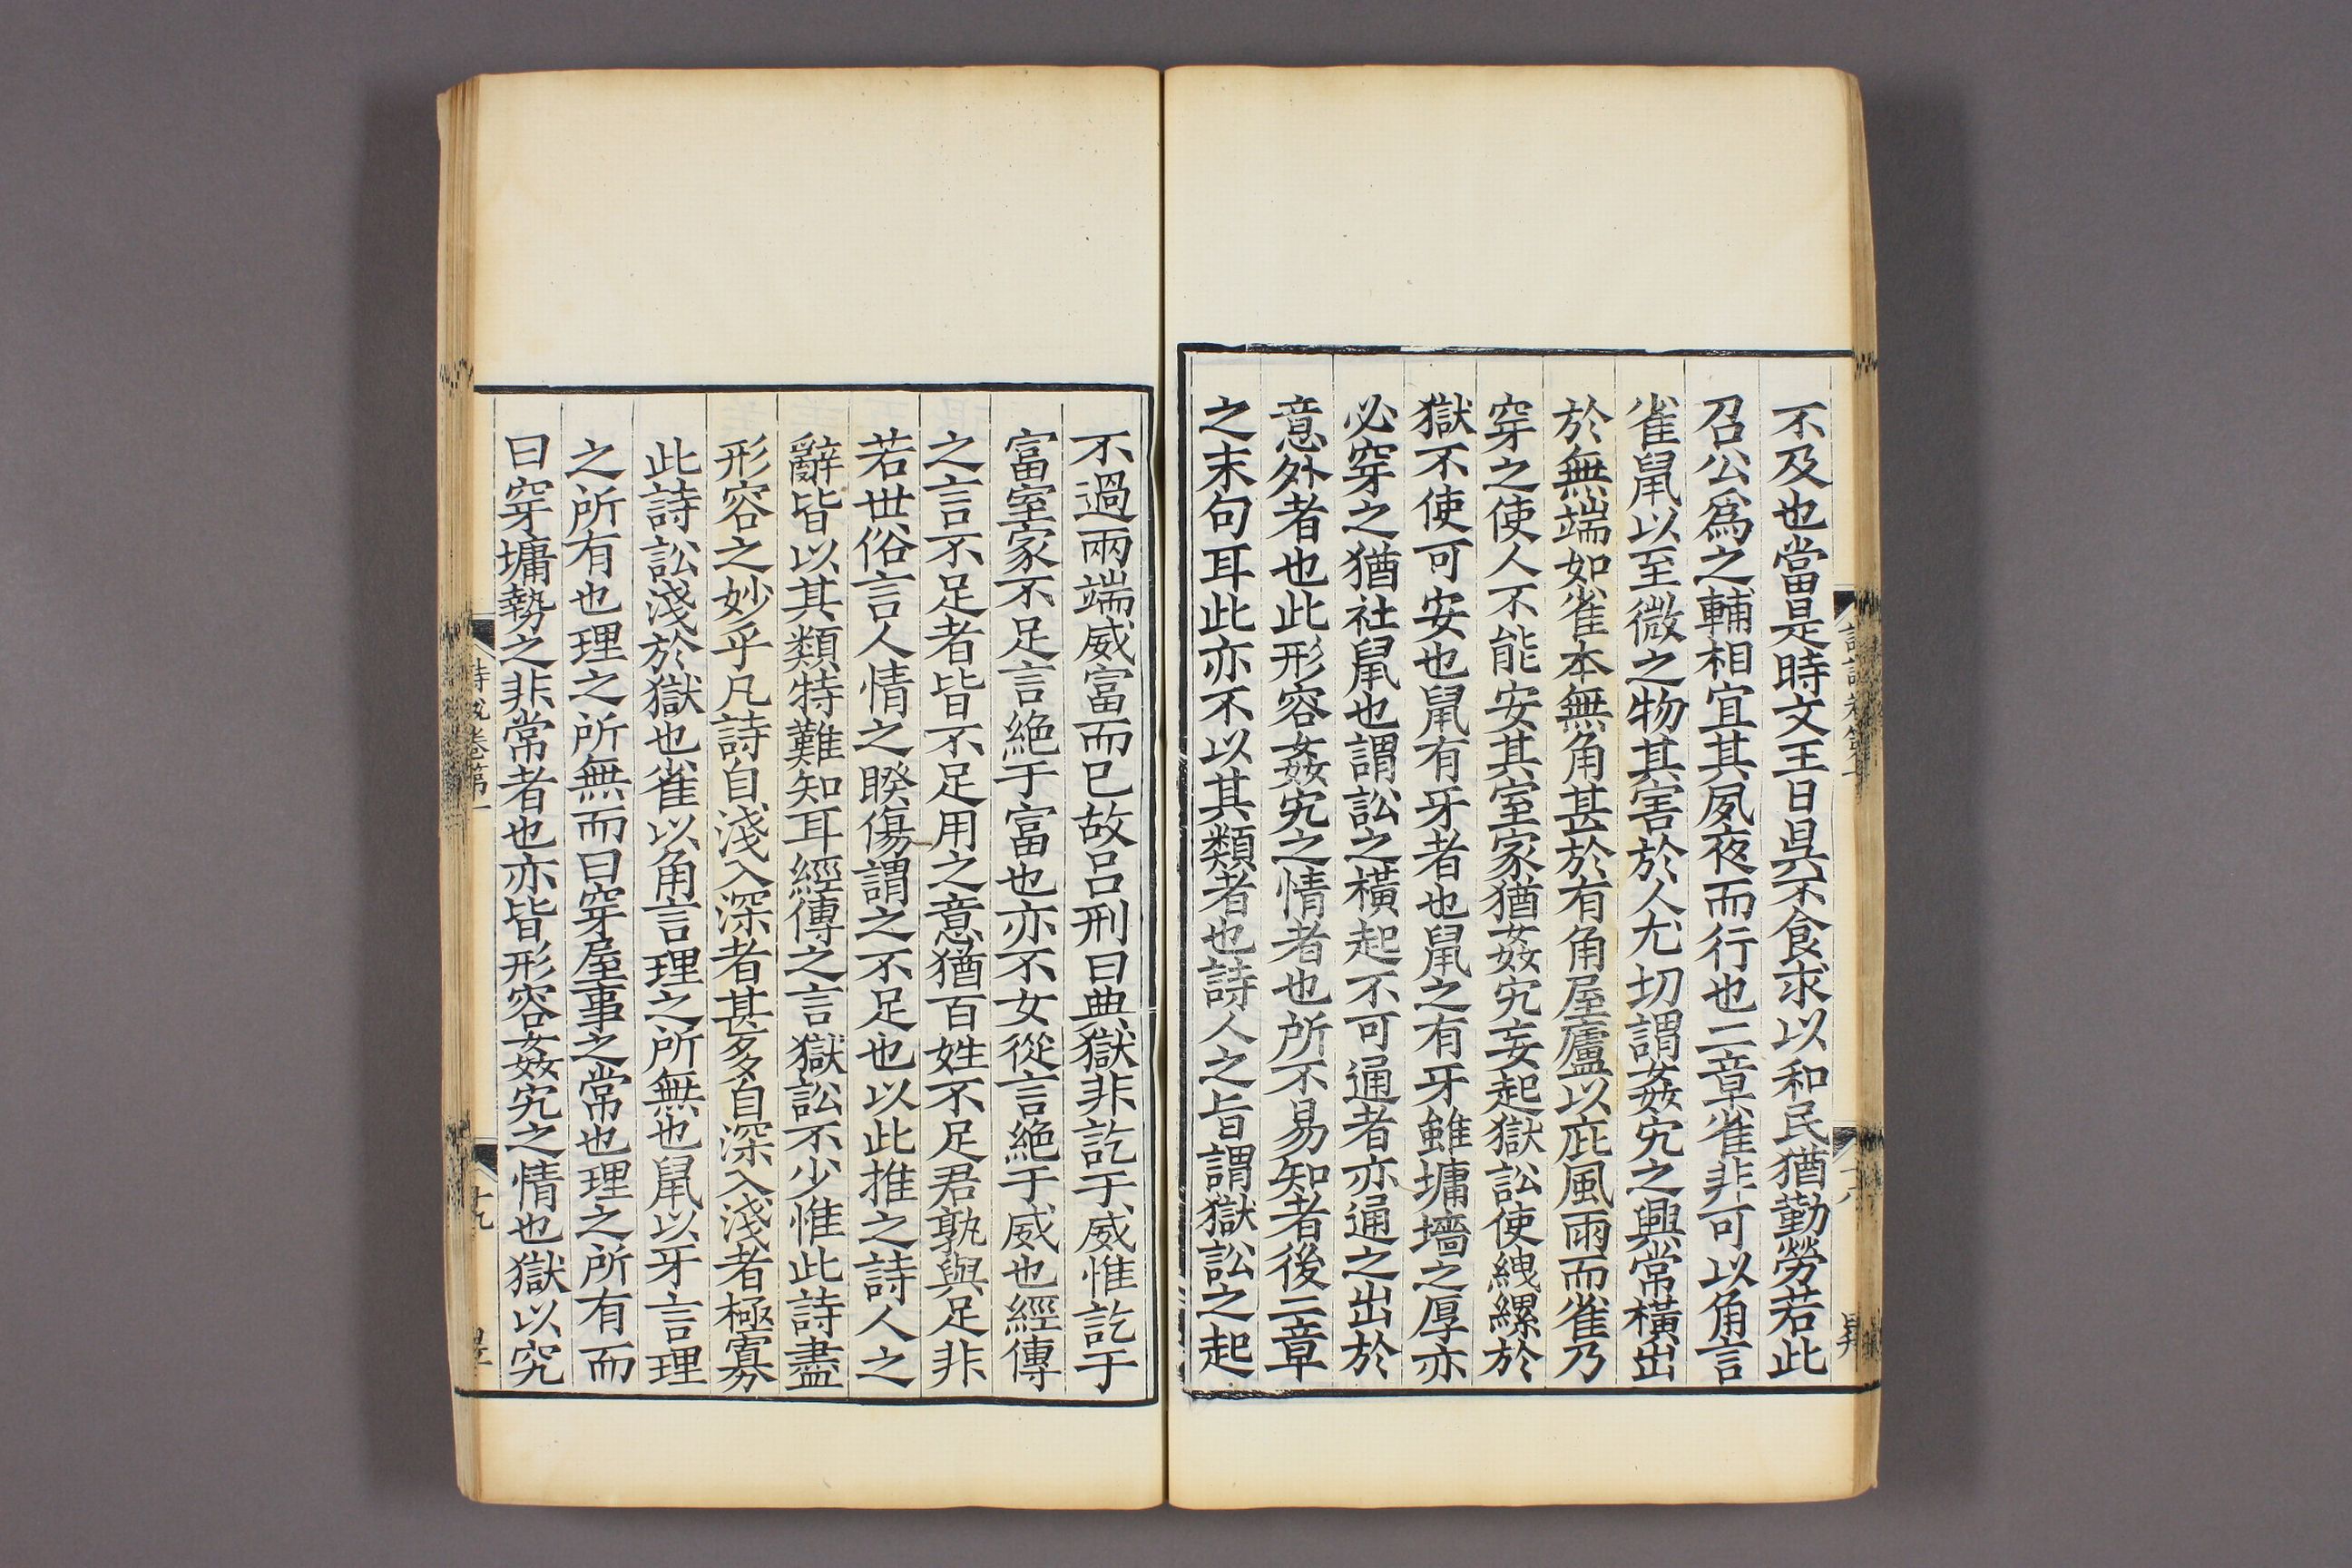 不及也當是時文王日昃不食求以和民猶勤勞若此
召公爲之輔相宜其夙夜而行也二章雀非可以角言
雀鼠以至微之物其害於人尤切謂姦宄之興常橫出
於無端如雀本無角甚於有角屋廬以庇風雨而雀乃
穿之使人不能安其室家猶姦宄妄起獄訟使縲絏於
獄不使可安也鼠有牙者也鼠之有牙雖墉墻之厚亦
必穿之猶社鼠也謂訟之橫起不可通者亦通之出於
意外者也此形容姦宄之情者也所不易知者後二章
之末句耳此亦不以其類者也詩人之旨謂獄訟之起
不過兩端威富而已故呂刑曰典獄非訖于威惟訖于
富室家不足言絶于富也亦不女從言絶于威也經傳
之言不足者皆不足用之意猶百姓不足君孰與足非
若世俗言人情之睽傷謂之不足也以此推之詩人之
辭皆以其類特難知耳經傳之言獄訟不少惟此詩盡
形容之妙乎凡詩自淺入深者甚多自深入淺者極寡
此詩訟淺於獄也雀以角言理之所無也鼠以牙言理
之所有也理之所無而曰穿屋事之常也理之所有而
曰穿墉勢之非常者也亦皆形容姦宄之情也獄以究
卷第一
十九